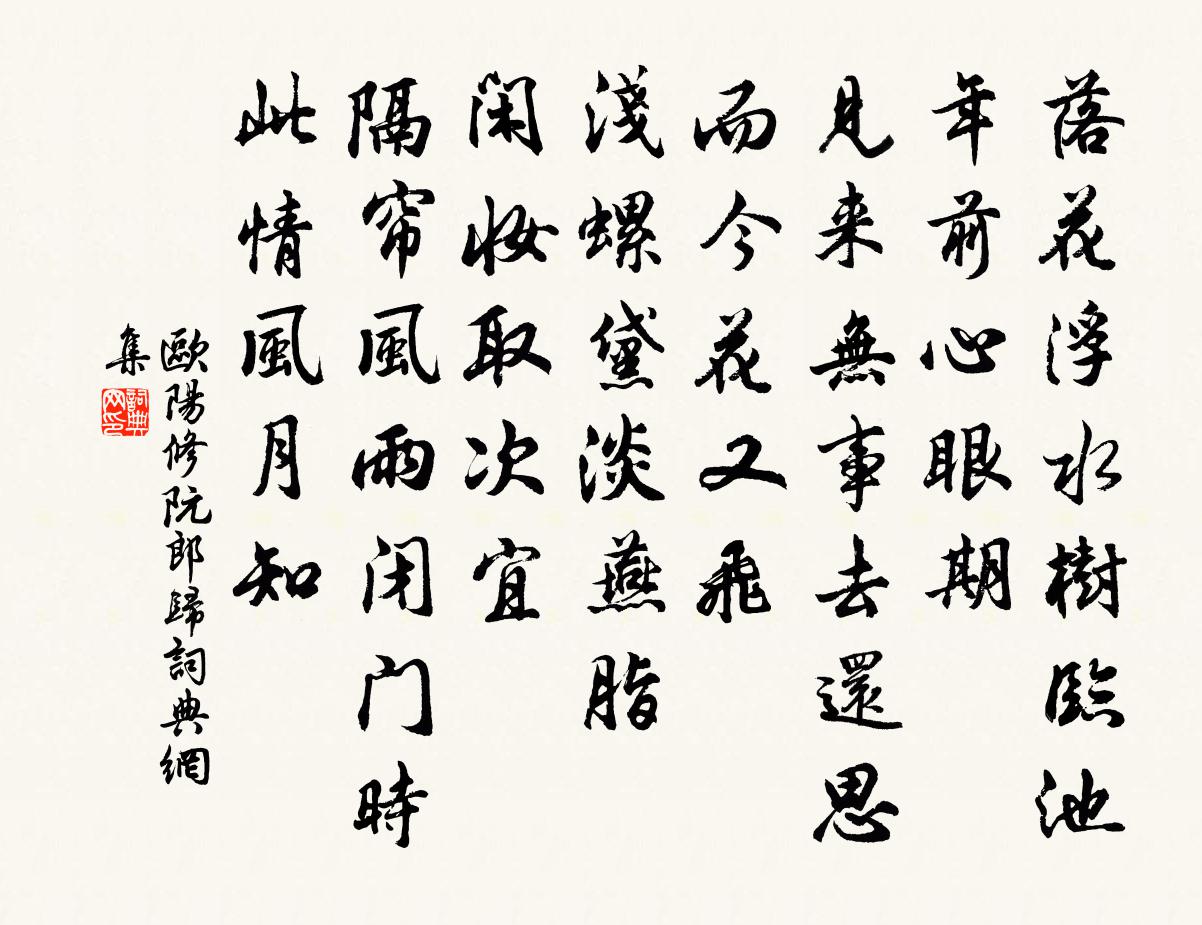 落花浮水樹臨池
年前心眼期
見来無事去還思
而今花又飛
淺螺黛淡燕脂
閑妝取次宜
隔帘風雨闭门時
此情風月知
歐陽修阮郎歸詞典網
集
詞典
网印